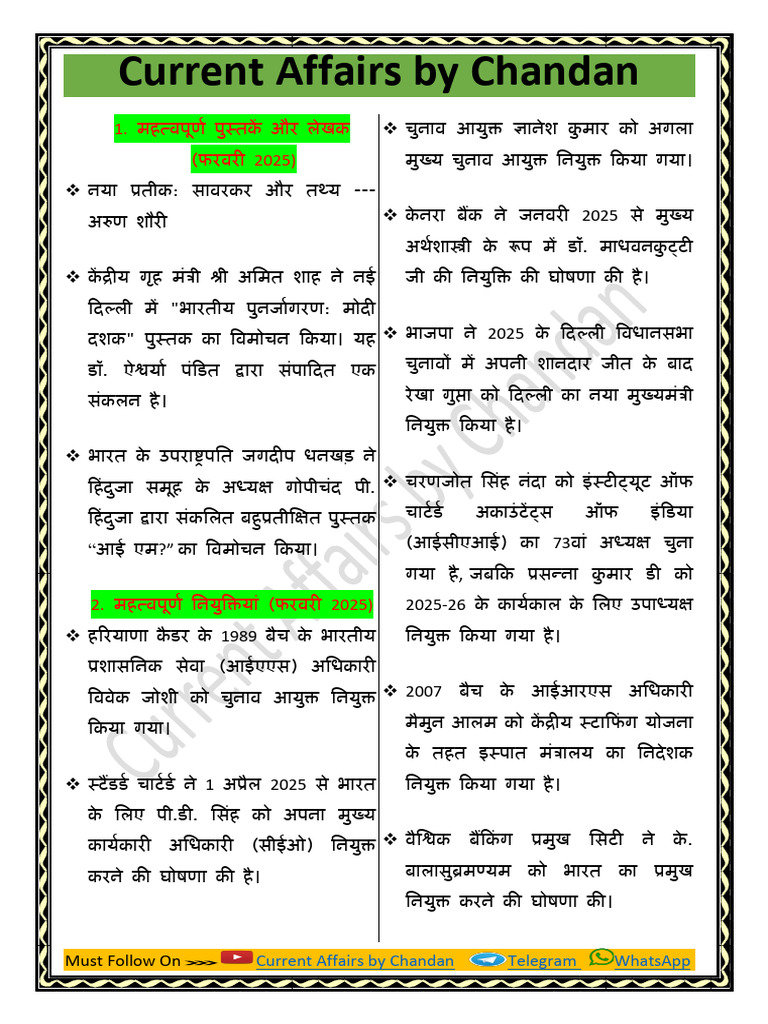 Current Affairs by Chandan
1. महत्वपूर्ण पुस्तकें और लेखक
(फरवरी 2025)
❖ नया प्रतीक: सावरकर और तथ्य ---
अरुण शौरी
❖ केंद्रीय गृह मंत्री श्री अमित शाह ने नई
दिल्ली में "भारतीय पुनर्जागरण: मोदी
दशक" पुस्तक का विमोचन किया। यह
डॉ. ऐश्वर्या पंडित द्वारा संपादित एक
संकलन है।
❖ भारत के उपराष्ट्रपति जगदीप धनखड़ ने
हिंदुजा समूह के अध्यक्ष गोपीचंद पी.
हिंदुजा द्वारा संकलित बहुप्रतीक्षित पुस्तक
“आई एम?” का विमोचन किया।
2. महत्वपूर्ण नियुक्तियां (फरवरी 2025)
❖ हरियाणा कैडर के 1989 बैच के भारतीय
प्रशासनिक सेवा (आईएएस) अधिकारी
विवेक जोशी को चुनाव आयुक्त नियुक्त
किया गया।
❖ स्टैंडर्ड चार्टर्ड ने 1 अप्रैल 2025 से भारत
के लिए पी.डी. सिंह को अपना मुख्य
कार्यकारी अधिकारी (सीईओ) नियुक्त
करने की घोषणा की है।
❖ चुनाव आयुक्त ज्ञानेश कुमार को अगला
मुख्य चुनाव आयुक्त नियुक्त किया गया।
❖ केनरा बैंक ने जनवरी 2025 से मुख्य
अर्थशास्त्री के रूप में डॉ. माधवनकुट्टी
जी की नियुक्ति की घोषणा की है।
❖ भाजपा ने 2025 के दिल्ली विधानसभा
चुनावों में अपनी शानदार जीत के बाद
रेखा गुप्ता को दिल्ली का नया मुख्यमंत्री
नियुक्त किया है।
❖ चरणजोत सिंह नंदा को इंस्टीट्यूट ऑफ
चार्टर्ड अकाउंटेंट्स ऑफ इंडिया
(आईसीएआई) का 73वां अध्यक्ष चुना
गया है, जबकि प्रसन्ना कुमार डी को
2025-26 के कार्यकाल के लिए उपाध्यक्ष
नियुक्त किया गया है।
❖ 2007 बैच के आईआरएस अधिकारी
मैमुन आलम को केंद्रीय स्टाफिंग योजना
के तहत इस्पात मंत्रालय का निदेशक
नियुक्त किया गया है।
❖ वैश्विक बैंकिंग प्रमुख सिटी ने के.
बालासुब्रमण्यम को भारत का प्रमुख
नियुक्त करने की घोषणा की।
Current Affairs by Chandan
Must Follow On Current Affairs by Chandan Telegram WhatsApp